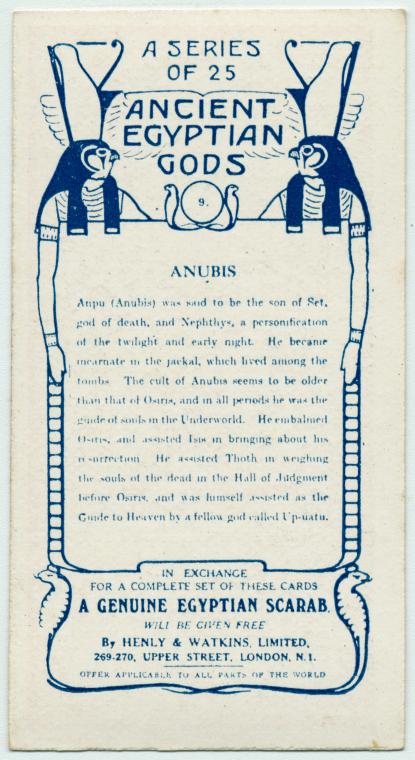 A SERIES
OF 25
ANCIENT
EGYPTIAN
GODS
9.
ANUBIS
Anpu (Anubis) was said to be the son of Set,
god of death, and Nephthys, a personification
of the twilight and early night. He became
incarnate in the jackal, which lived among the
tombs. The cult of Anubis seems to be older
than that of Osiris, and in all periods he was the
guide of souls in the Underworld. He embalmed
Osiris, and assisted Isis in bringing about his
resurrection. He assisted Thoth in weighing
the souls of the dead in the Hall of Judgment
before Osiris, and was himself assisted as the
Guide to Heaven by a fellow god called Up-uatu.
IN EXCHANGE
FOR A COMPLETE SET OF THESE CARDS
A GENUINE EGYPTIAN SCARAB,
WILL BE GIVEN FREE
By HENLY & WATKINS, LIMITED,
269-270, UPPER STREET, LONDON, N.1.
OFFER APPLICABLE TO ALL PARTS OF THE WORLD